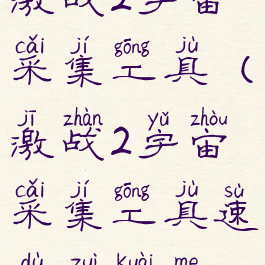 激战2宇宙
cǎi jí gōng jù
采集工具（
jī zhàn yǔ zhòu
激战2宇宙
cǎi jí gōng jù sù
采集工具速
dù zuì kuài me